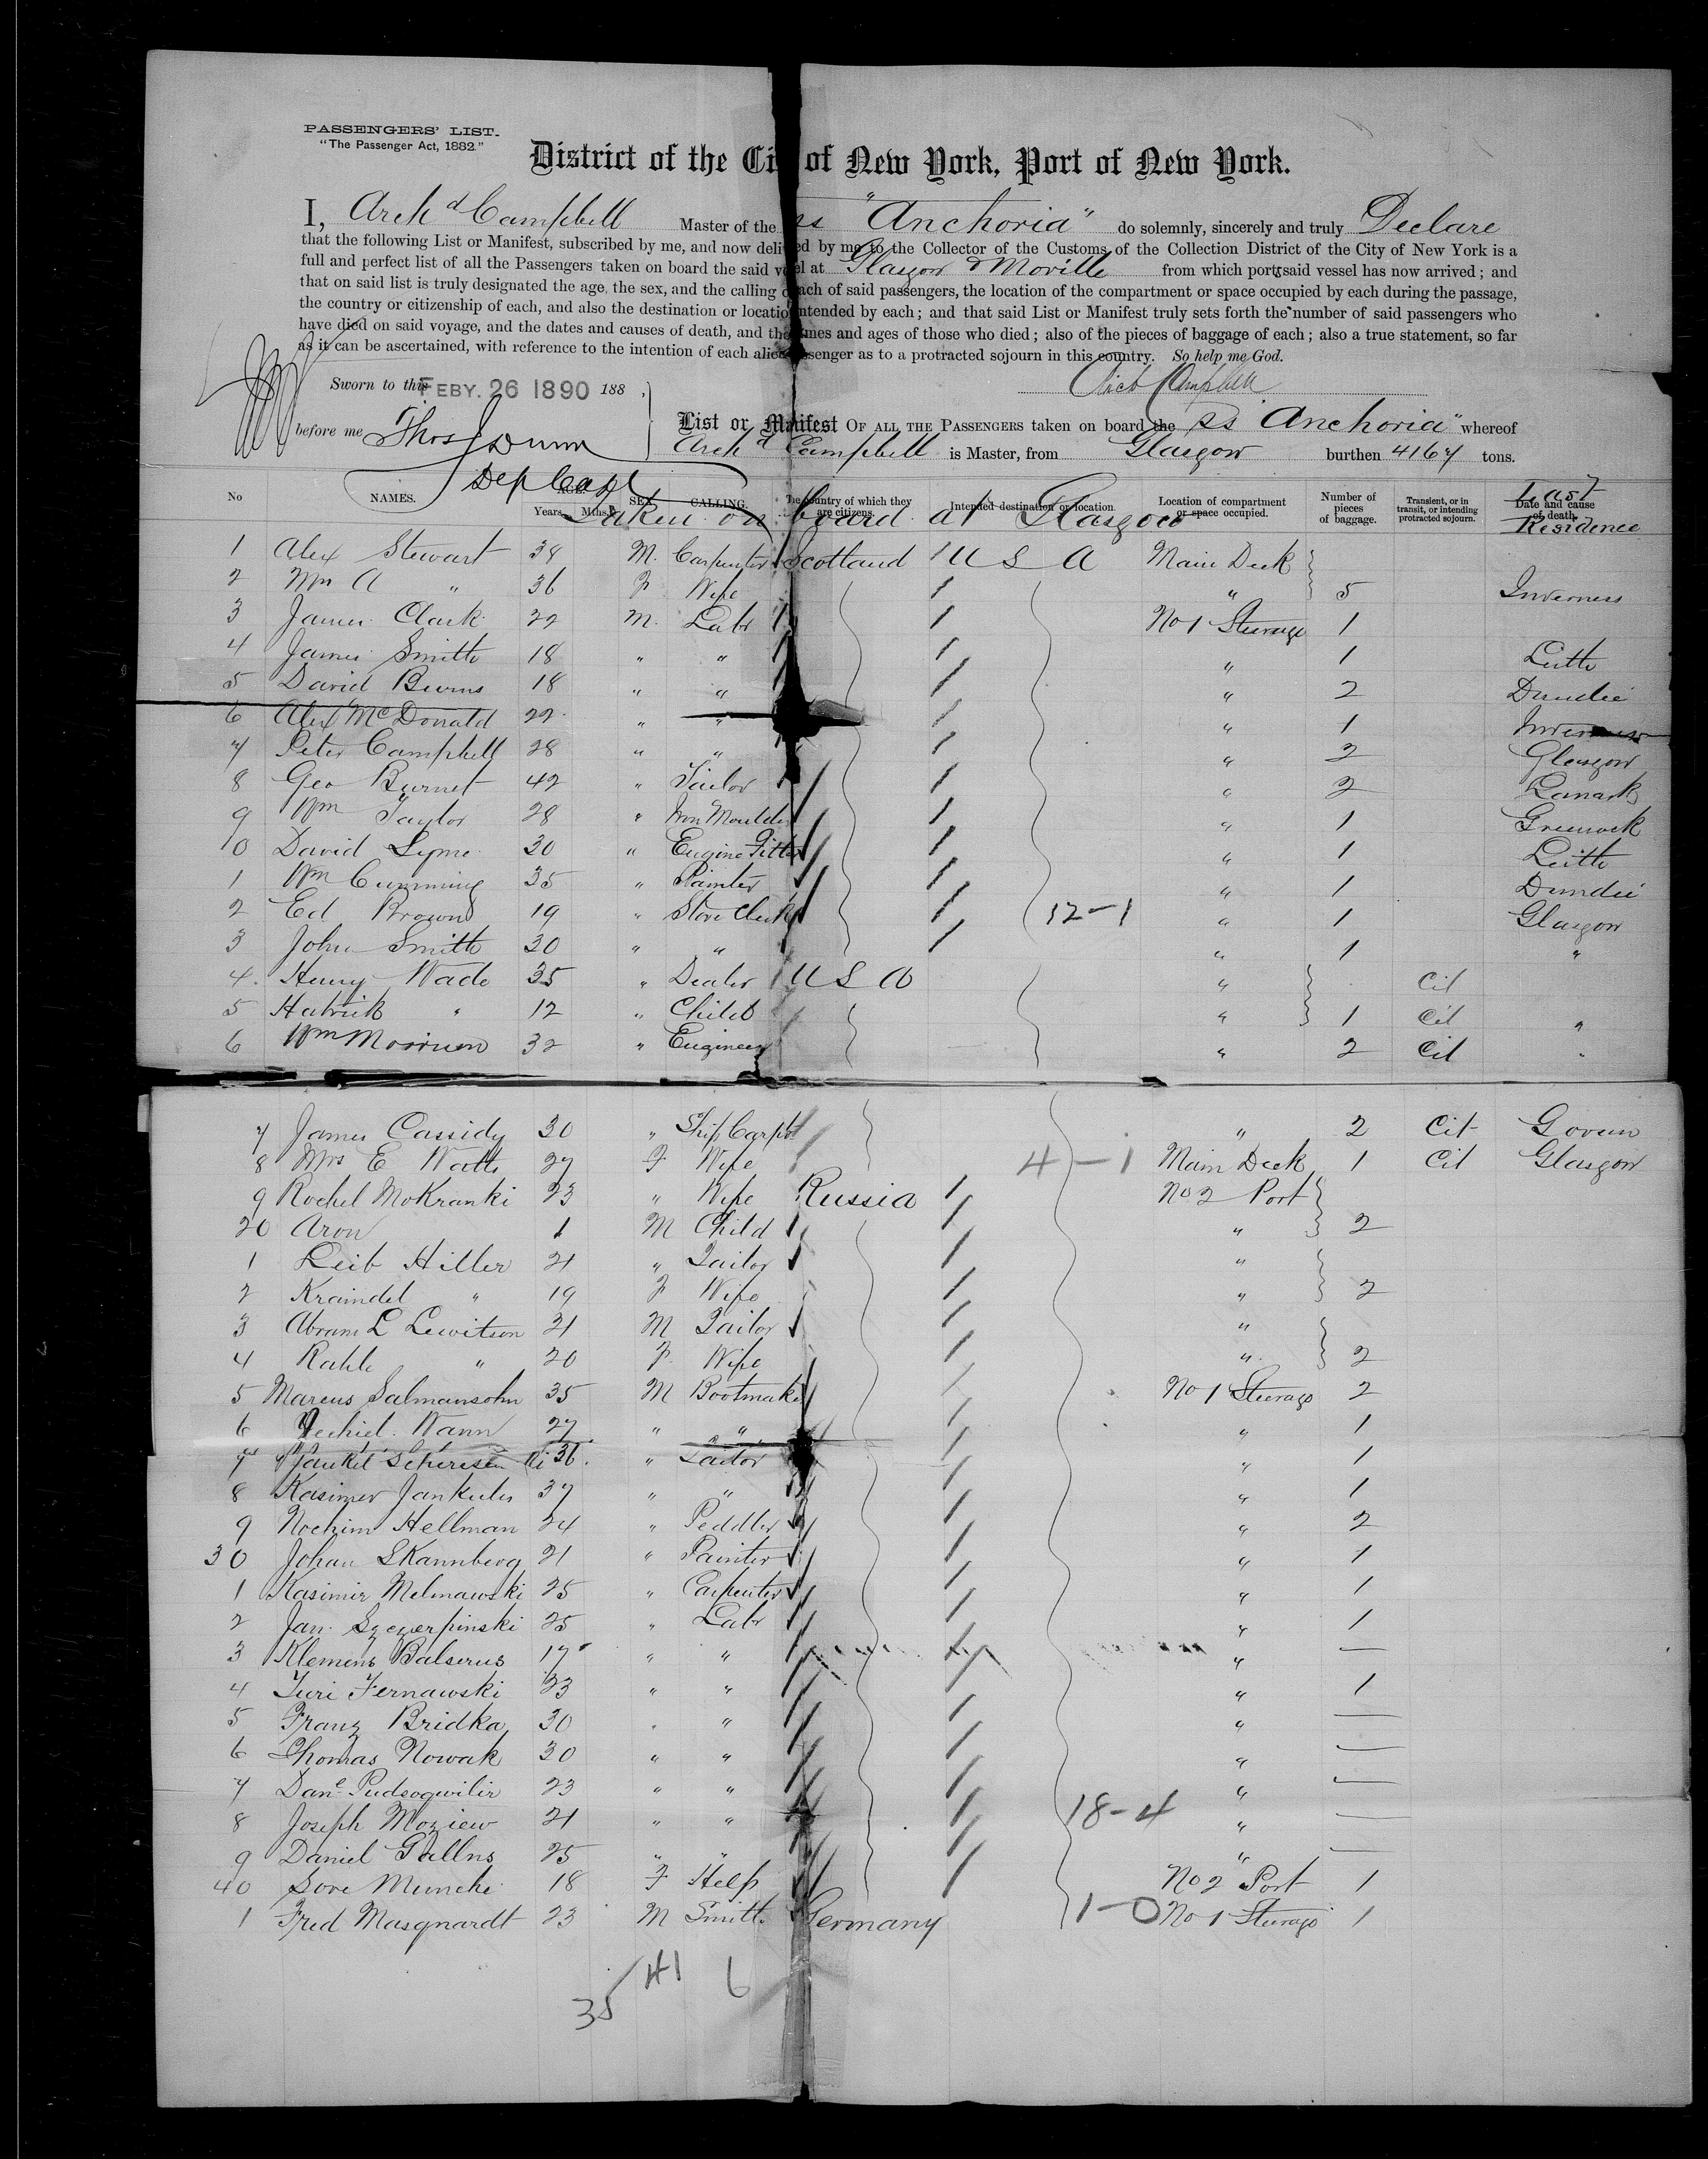 PASSENGERS' LIST.
"The Passenger Act, 1882."
District of the Ci of New York, Port of New York.
I, Archd Campbell Master of the ss "Anchoria" do solemnly, sincerely and truly Declare
that the following List or Manifest, subscribed by me, and now delivered by me to the Collector of the Customs of the Collection District of the City of New York is a
full and perfect list of all the Passengers taken on board the said vessel at Glasgow & Moville from which ports said vessel has now arrived; and
that on said list is truly designated the age, the sex, and the calling of each of said passengers, the location of the compartment or space occupied by each during the passage,
the country or citizenship of each, and also the destination or location intended by each; and that said List or Manifest truly sets forth the number of said passengers who
have died on said voyage, and the dates and causes of death, and the names and ages of those who died; also of the pieces of baggage of each; also a true statement, so far
as it can be ascertained, with reference to the intention of each alien passenger as to a protracted sojourn in this country. So help me God.
Sworn to this FEBY. 26 1890 188 Arch Campbell
before me Thos J Dunn
List or Manifest OF ALL THE PASSENGERS taken on board the ss Anchoria" whereof
Archd Campbell is Master, from Glasgow burthen 4167 tons.
Dep Coll
No NAMES. AGE. Years. Mths. SEX. CALLING. The country of which they are citizens. Intended destination or location. Location of compartment or space occupied. Number of pieces of baggage. Transient, or in transit, or intending protracted sojourn. Date and cause of death. Last Residence
Taken on board at Glasgow
1 Alex Stewart 34 M. Carpenter Scotland U S A Main Deck
2 Mrs A " 36 F Wife " 5 Inverness
3 James Clark 22 M. Labr No 1 Steerage 1
4 James Smith 18 " " " 1 Leith
5 David Burns 18 " " " 2 Dundee
6 Alex McDonald 22 " " " 1 Inverness
7 Peter Campbell 28 " " " 2 Glasgow
8 Geo Burnet 42 " Tailor " 2 Lanark
9 Wm Taylor 28 " Iron Moulder " 1 Greenock
10 David Syme 30 " Engine Fitter " 1 Leith
1 Wm Cumming 35 " Painter " 1 Dundee
2 Ed Brown 19 " Store Clerk 12-1 " 1 Glasgow
3 John Smith 30 " " " 1 "
4. Henry Wade 35 " Dealer U S A " Cit
5 Hatrick " 12 " Child " 1 Cit "
6 Wm Morrison 32 " Engineer " 2 Cit "
7 James Cassidy 30 " Ship Carptr " 2 Cit Govan
8 Mrs E Watts 27 F Wife 4-1 Main Deck 1 Cit Glasgow
9 Rochel MoKranki 23 " Wife Russia No 2 Port
20 Aron 1 M Child " 2
1 Leib Hiller 21 " Tailor "
2 Kraindel " 19 F Wife " 2
3 Abram L Lewitson 21 M Tailor "
4 Rahle " 20 F Wife " 2
5 Marcus Salmansohn 35 M Bootmaker No 1 Steerage 2
6 Jechiel Wann 27 " " " 1
7 Jankel 36 " Tailor " 1
8 Kasimer Jankules 37 " " " 1
9 Nochim Hellman 24 " Peddler " 2
30 Johan SKannberg 21 " Painter " 1
1 Kasimir Melmawski 25 " Carpenter " 1
2 Jan Szczerpinski 25 " Labr " 1
3 Klemens Balserus 17 " " " —
4 Juri Fernawski 23 " " " 1
5 Franz Bridka 30 " " " —
6 Thomas Nowak 30 " " " —
7 Danl Pudsogwilir 23 " " " —
8 Joseph Moziew 21 " " 18-4 " —
9 Daniel Gallns 25 " " " —
40 Sore Munche 18 F Help No 2 Port 1
1 Fred Masgnardt 23 M Smith Germany 1-0 No 1 Steerage 1
35 41 6